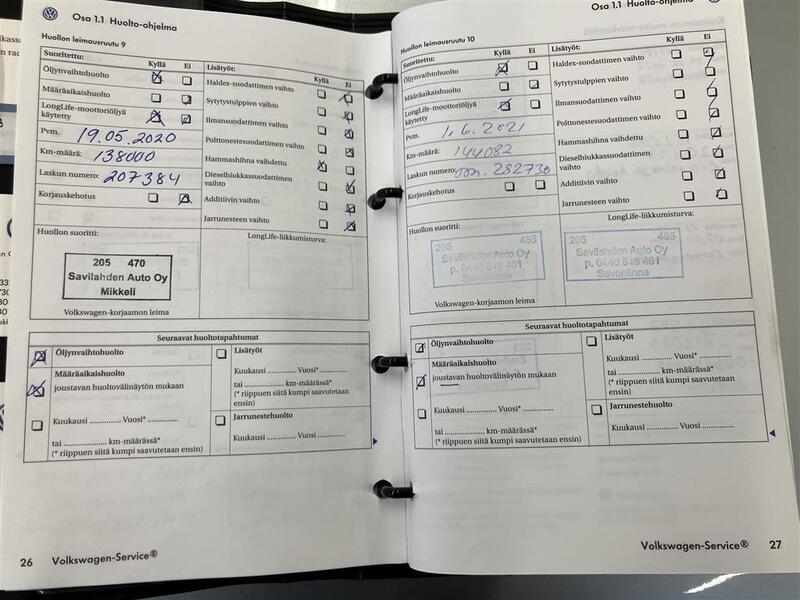 Osa 1.1 Huolto-ohjelma
Huollon leimausruutu 9
Suoritettu: Kyllä Ei
Öljynvaihtohuolto
Määräaikaishuolto
LongLife-moottoriöljyä
käytetty
Pvm. 19.05.2020
Km-määrä: 138000
Laskun numero: 207384
Korjauskehotus
Lisätyöt: Kyllä Ei
Haldex-suodattimen vaihto
Sytytystulppien vaihto
Ilmansuodattimen vaihto
Polttonestesuodattimen vaihto
Hammashihna vaihdettu
Dieselhiukkassuodattimen
vaihto
Additiivin vaihto
Jarrunesteen vaihto
Huollon suoritti:
LongLife-liikkumisturva:
205 470
Savilahden Auto Oy
Mikkeli
Volkswagen-korjaamon leima
Seuraavat huoltotapahtumat
Öljynvaihtohuolto
Määräaikaishuolto
joustavan huoltovälinäytön mukaan
Kuukausi .............. Vuosi* ................
tai ..................... km-määrässä*
(* riippuen siitä kumpi saavutetaan
ensin)
Lisätyöt
Kuukausi ............... Vuosi* ...............
tai .................... km-määrässä*
(* riippuen siitä kumpi saavutetaan
ensin)
Jarrunestehuolto
Kuukausi ............... Vuosi ...............
26 Volkswagen-Service®
Osa 1.1 Huolto-ohjelma
Huollon leimausruutu 10
Suoritettu: Kyllä Ei
Öljynvaihtohuolto
Määräaikaishuolto
LongLife-moottoriöljyä
käytetty
Pvm. 1.6.2021
Km-määrä: 144082
Laskun numero: 282730
Korjauskehotus
Lisätyöt: Kyllä Ei
Haldex-suodattimen vaihto
Sytytystulppien vaihto
Ilmansuodattimen vaihto
Polttonestesuodattimen vaihto
Hammashihna vaihdettu
Dieselhiukkassuodattimen
vaihto
Additiivin vaihto
Jarrunesteen vaihto
Huollon suoritti:
LongLife-liikkumisturva:
205 485
Savilahden Auto Oy
p. 0440 516 461
Savonlinna
205 485
Savilahden Auto Oy
p. 0440 516 461
Savonlinna
Volkswagen-korjaamon leima
Seuraavat huoltotapahtumat
Öljynvaihtohuolto
Määräaikaishuolto
joustavan huoltovälinäytön mukaan
Kuukausi .............. Vuosi* ................
tai ..................... km-määrässä*
(* riippuen siitä kumpi saavutetaan
ensin)
Lisätyöt
Kuukausi ............... Vuosi ...............
tai .................... km-määrässä*
(* riippuen siitä kumpi saavutetaan
ensin)
Jarrunestehuolto
Kuukausi ............... Vuosi ...............
Volkswagen-Service® 27